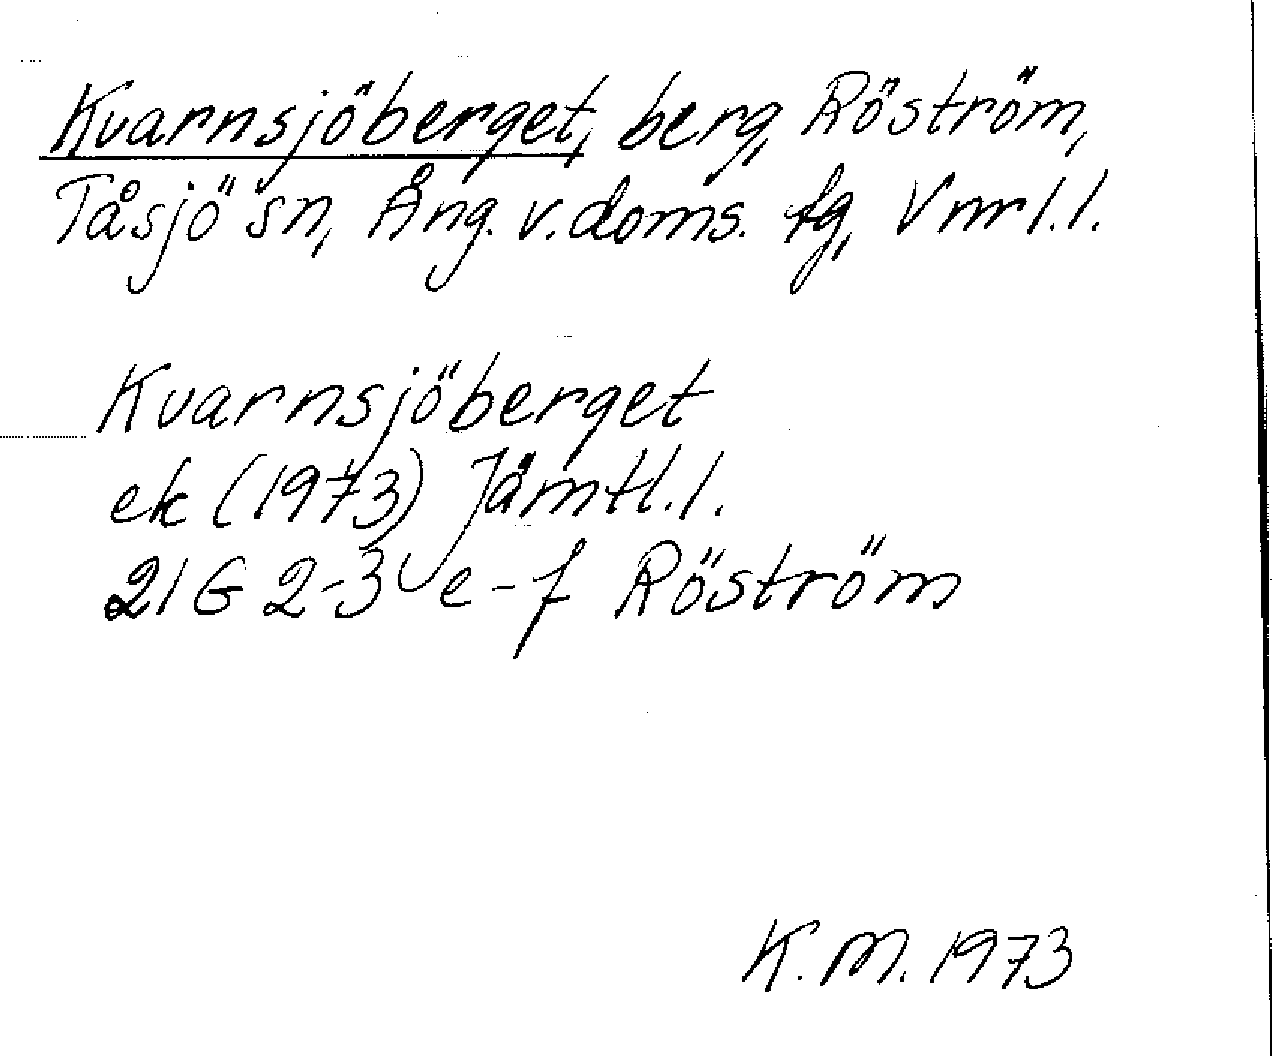 Kvarnsjöberget, berg, Röström,
Tåsjö sn, Ång. v. doms. tg, Vnrl. l.
Kvarnsjöberget
ek (1973) Jämtl. l.
21 G 2-3 e-f Röström
K. M. 1973